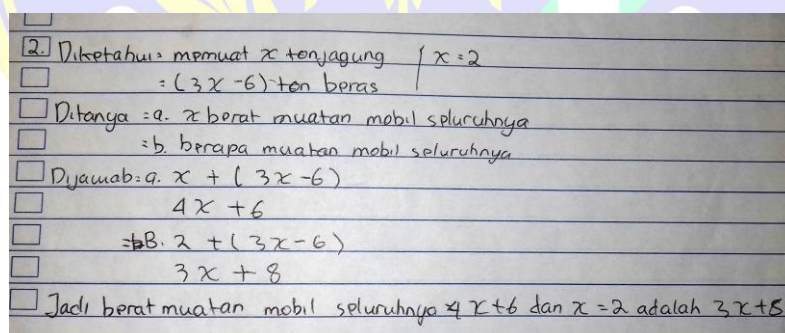 2. Diketahui = memuat x ton jagung / x = 2
= (3x - 6) ton beras
Ditanya = a. x berat muatan mobil seluruhnya
= b. berapa muatan mobil seluruhnya
Dijawab = a. x + (3x - 6)
4x + 6
= B. 2 + (3x - 6)
3x + 8
Jadi berat muatan mobil seluruhnya 4x + 6 dan x = 2 adalah 3x + 8